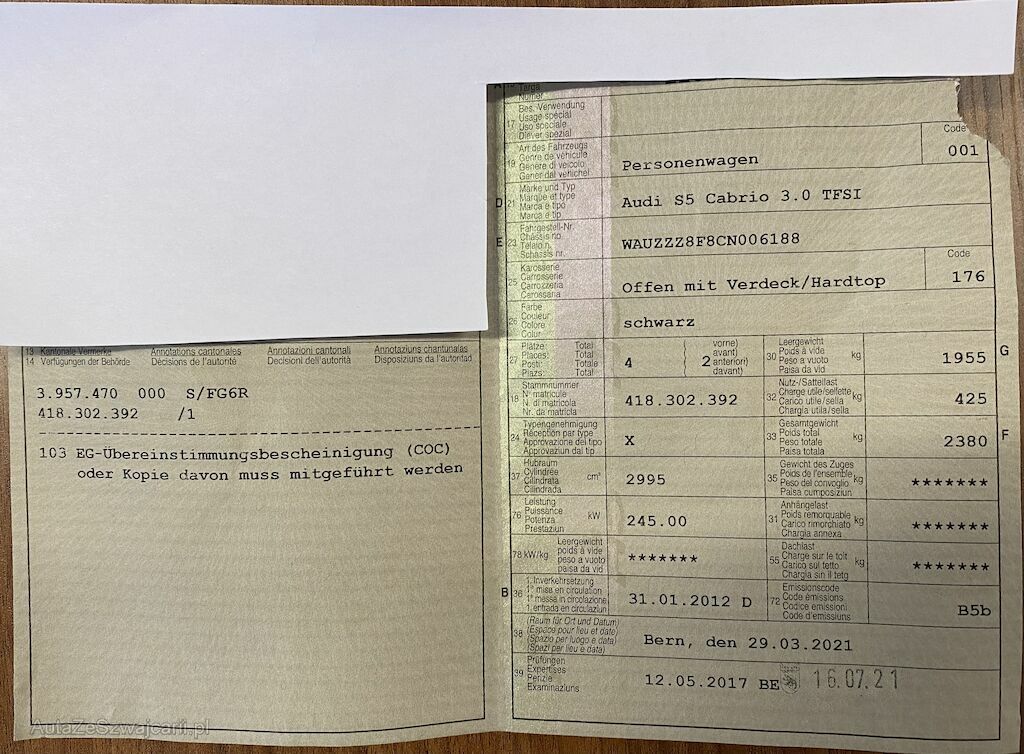 A
Targa
Numer
17 Bes. Verwendung
Usage spécial
Uso speciale
Diever spezial
19 Art des Fahrzeugs
Genre de véhicule
Genere di veicolo
Gener dal vehichel
Personenwagen
Code
001
D 21 Marke und Typ
Marque et type
Marca e tipo
Marca e tip
Audi S5 Cabrio 3.0 TFSI
E 23 Fahrgestell-Nr.
Châssis no.
Telaio n.
Schassis nr.
WAUZZZ8F8CN006188
25 Karosserie
Carrosserie
Carrozzeria
Carossaria
Offen mit Verdeck/Hardtop
Code
176
26 Farbe
Couleur
Colore
Colur
schwarz
27 Plätze: Total
Places: Total
Posti: Totale
Plazs: Total
4
( vorne)
avant)
2 anteriori)
( davant)
30 Leergewicht
Poids à vide
Peso a vuoto
Paisa da vid
kg
1955
G
18 Stammnummer
N° matricule
N. di matricola
Nr. da matricla
418.302.392
32 Nutz-/Sattellast
Charge utile/sellette
Carico utile/sella
Chargia utila/sella
kg
425
24 Typengenehmigung
Réception par type
Approvazione del tipo
Approvaziun dal tip
X
33 Gesamtgewicht
Poids total
Peso totale
Paisa totala
kg
2380
F
37 Hubraum
Cylindrée
Cilindrata
Cilindrada
cm³
2995
35 Gewicht des Zuges
Poids de l'ensemble
Peso del convoglio
Paisa cumposiziun
kg
*******
76 Leistung
Puissance
Potenza
Prestaziun
kW
245.00
31 Anhängelast
Poids remorquable
Carico rimorchiato
Chargia annexa
kg
*******
78 kW/kg
Leergewicht
poids à vide
peso a vuoto
paisa da vid
*******
55 Dachlast
Charge sur le toit
Carico sul tetto
Chargia sin il tetg
kg
*******
B 36 1. Inverkehrsetzung
1re mise en circulation
1a messa in circolazione
1. entrada en circulaziun
31.01.2012 D
72 Emissionscode
Code émissions
Codice emissioni
Code d'emissiuns
B5b
38 (Raum für Ort und Datum)
(Espace pour lieu et date)
(Spazio per luogo e data)
(Spazi per lieu e data)
Bern, den 29.03.2021
39 Prüfungen
Expertises
Perizie
Examinaziuns
12.05.2017 BE
16.07.21
13 Kantonale Vermerke Annotations cantonales Annotazioni cantonali Annotaziuns chantunalas
14 Verfügungen der Behörde Décisions de l'autorité Decisioni dell'autorità Disposiziuns da l'autoritad
3.957.470 000 S/FG6R
418.302.392 /1
103 EG-Übereinstimmungsbescheinigung (COC)
oder Kopie davon muss mitgeführt werden
AutaZeSzwajcarii.pl